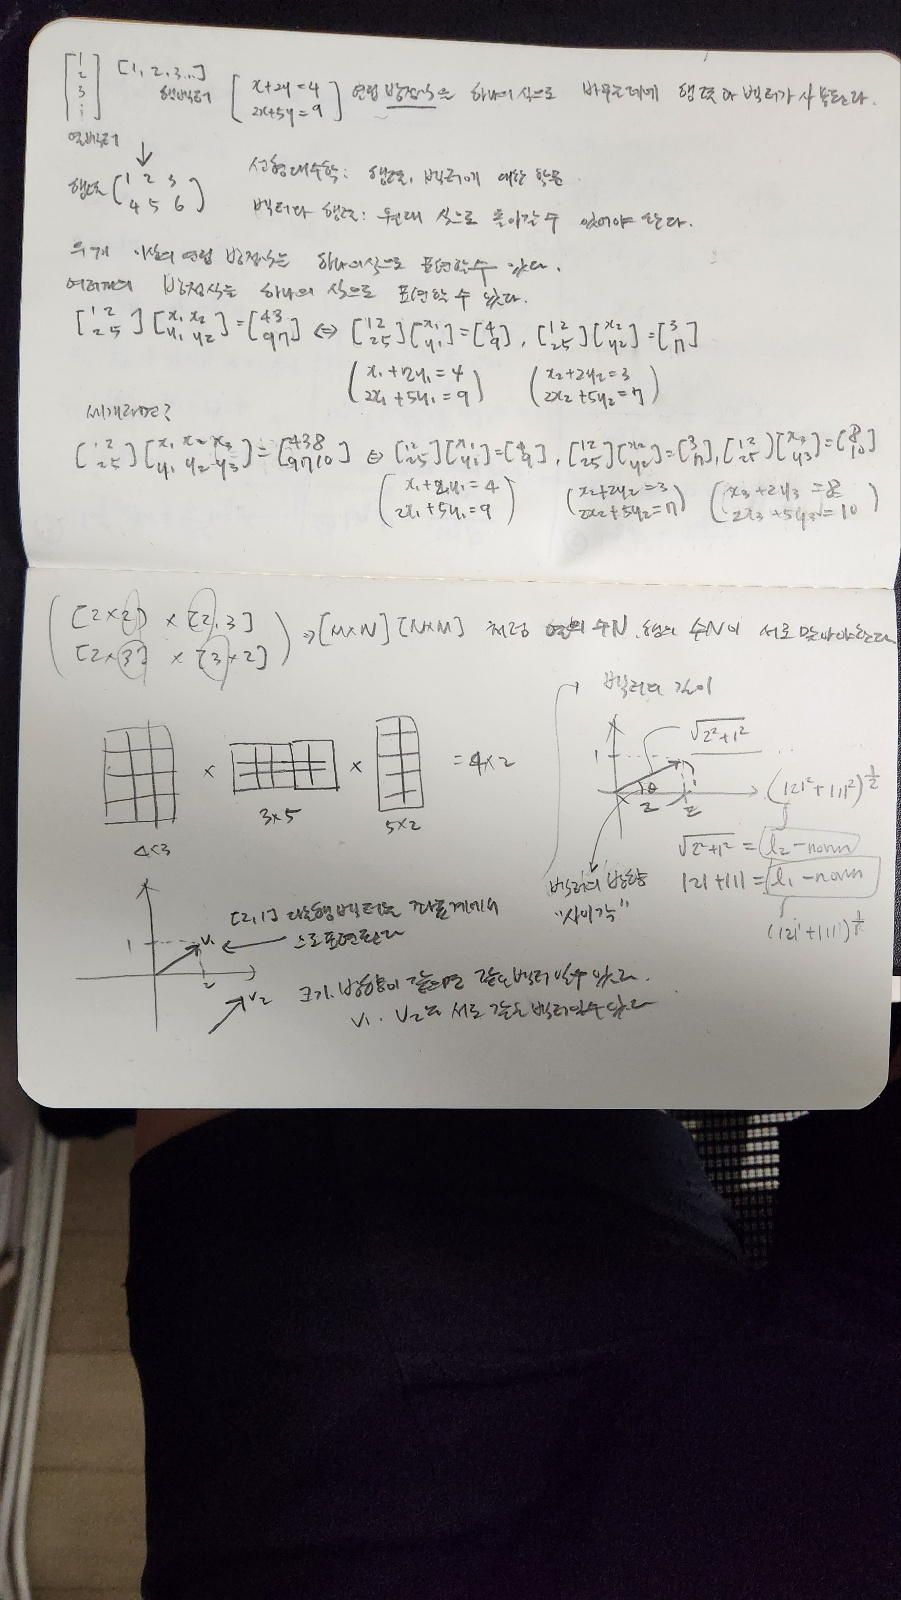 [1 2 3 ⋮] [1, 2, 3...]
행벡터 [x+2y=4 2x+5y=9] 연립 방정식을 하나의 식으로 바꾸는데에 행렬과 벡터가 사용된다.
열벡터
행렬 [1 2 3 4 5 6] 선형대수학: 행렬, 벡터에 대한 학문
벡터와 행렬: 원래 식으로 돌아갈 수 있어야 한다.
두개 이상의 연립 방정식는 하나의식으로 표현할수 있다.
여러개의 방정식는 하나의 식으로 표현할 수 있다.
[1 2 2 5] [x₁ x₂ y₁ y₂] = [4 3 9 7] ⇔ [1 2 2 5] [x₁ y₁] = [4 9], [1 2 2 5] [x₂ y₂] = [3 7]
(x₁+2y₁=4 2x₁+5y₁=9) (x₂+2y₂=3 2x₂+5y₂=7)
세개라면?
[1 2 2 5] [x₁ x₂ x₃ y₁ y₂ y₃] = [4 3 8 9 7 10] ⇔ [1 2 2 5] [x₁ y₁] = [4 9], [1 2 2 5] [x₂ y₂] = [3 7], [1 2 2 5] [x₃ y₃] = [8 10]
(x₁+2y₁=4 2x₁+5y₁=9) (x₂+2y₂=3 2x₂+5y₂=7) (x₃+2y₃=8 2x₃+5y₃=10)
([2×2] × [2,3] [2×3] × [3×2]) ⇒ [M×N] [N×M] 처럼 열의 수N, 행의 수N이 서로 맞아야한다
벡터의 길이
√2²+1²
1
θ
2
2
(|2|²+|1|²)^½
× × = 4×2
4×3
3×5
5×2
√2²+1² = l₂-norm
벡터의 방향 |2|+|1| = l₁-norm
"사이각"
(|2|¹+|1|¹)
[2,1] 라는행벡터는 좌표계에서
1 v₁ 으로표현한다
2
v₂ 크기, 방향이 같으면 같은벡터 일수 있다.
v₁, v₂는 서로 같은 벡터일수있다